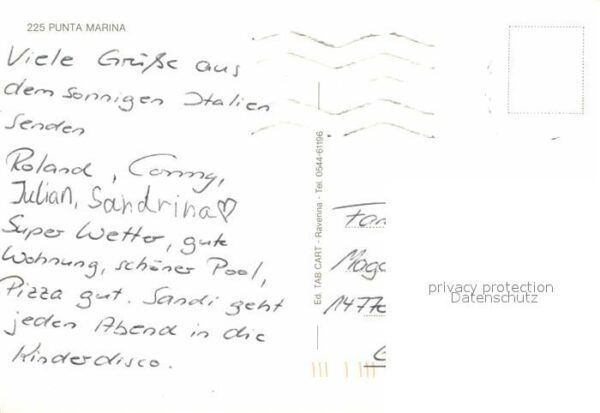 225 PUNTA MARINA
Viele Grüße aus
dem sonnigen Italien
senden
Roland, Conny,
Julian, Sandrina♡
Super Wetter, gute
Wohnung, schöner Pool,
Pizza gut. Sandi geht
jeden Abend in die
Kinderdisco.
Ed. TAB CART - Ravenna - Tel. 0544-61196
privacy protection
Datenschutz